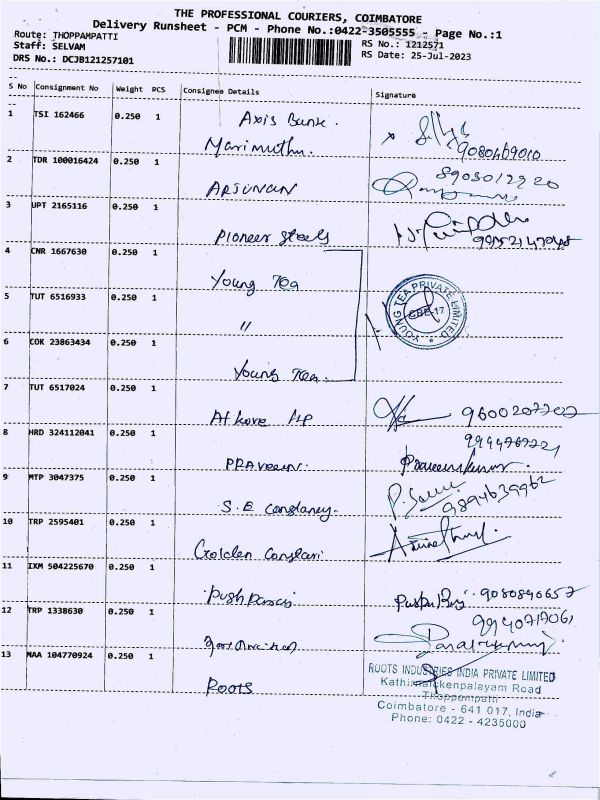 THE PROFESSIONAL COURIERS, COIMBATORE
Delivery Runsheet - PCM - Phone No.:0422-3505555 - Page No.:1
Route: THOPPAMPATTI
RS No.: 1212571
Staff: SELVAM
RS Date: 25-Jul-2023
DRS No.: DCJB121257101
S No Consignment No Weight PCS Consignee Details Signature
1 TSI 162466 0.250 1 Axis Bank.
Marimuthu. 9080469010
2 TDR 100016424 0.250 1 8903012920
ARJUNAN
3 UPT 2165116 0.250 1
Pioneer steels
4 CNR 1667630 0.250 1
Young Tea
YOUNG TEA PRIVATE LIMITED
CBE-17
5 TUT 6516933 0.250 1
"
6 COK 23863434 0.250 1
Young Tea.
7 TUT 6517024 0.250 1
9600207202
8 HRD 324112041 0.250 1
PRAVEEN. Praveenkumar.
9 MTP 3047375 0.250 1
S.E 9894639962
10 TRP 2595401 0.250 1
Golden
11 IXM 504225670 0.250 1
9080840657
12 TRP 1338630 0.250 1 9940717061
13 MAA 104770924 0.250 1
Roots
ROOTS INDUSTRIES INDIA PRIVATE LIMITED
Kathirnaickenpalayam Road
Thoppampatti
Coimbatore - 641 017, India
Phone: 0422 - 4235000